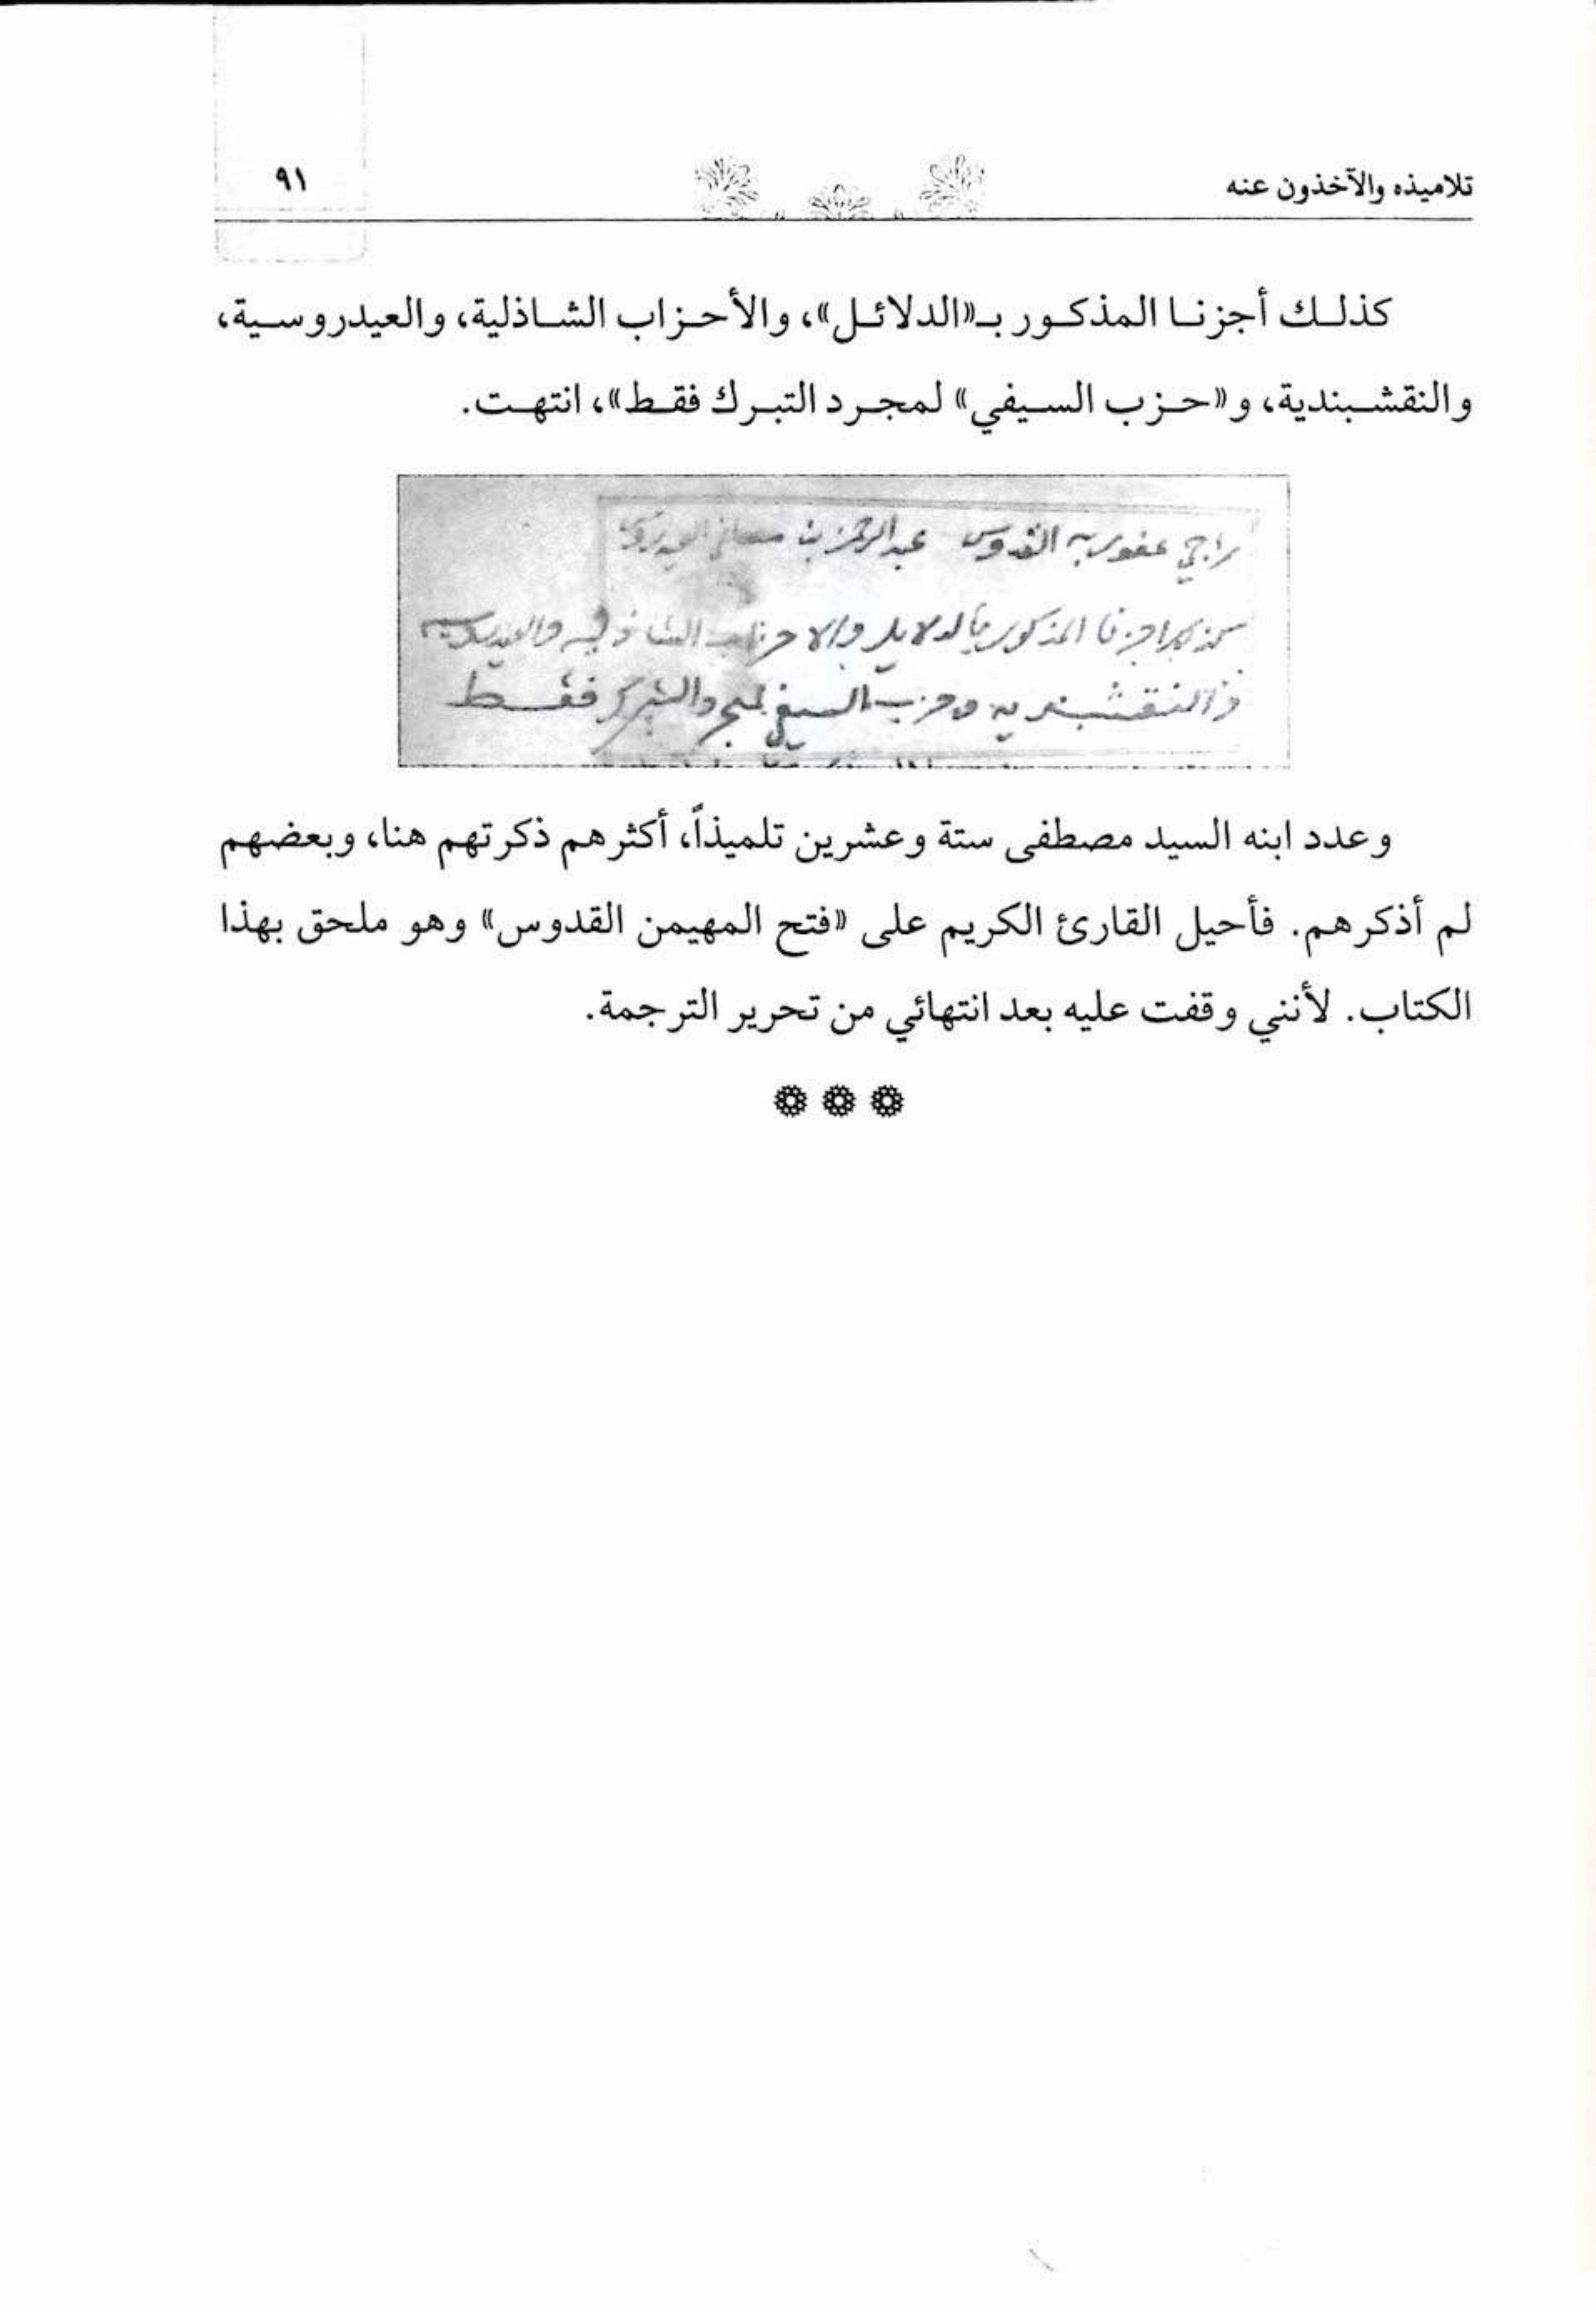 تلاميذه والآخذون عنه
٩١
كذلك أجزنا المذكور بـ«الدلائل»، والأحزاب الشاذلية، والعيدروسية،
والنقشبندية، و«حزب السيفي» لمجرد التبرك فقط»، انتهت.
راجي عفو ربه القدوس عبدالرحمن بن مصطفى العيدروس
كذلك اجزنا المذكور بالدلايل والاحزاب الشاذليه والعيدروسيه
والنقشبنديه وحزب السيفي لمجرد التبرك فقط
وعدد ابنه السيد مصطفى ستة وعشرين تلميذاً، أكثرهم ذكرتهم هنا، وبعضهم
لم أذكرهم. فأحيل القارئ الكريم على «فتح المهيمن القدوس» وهو ملحق بهذا
الكتاب. لأنني وقفت عليه بعد انتهائي من تحرير الترجمة.